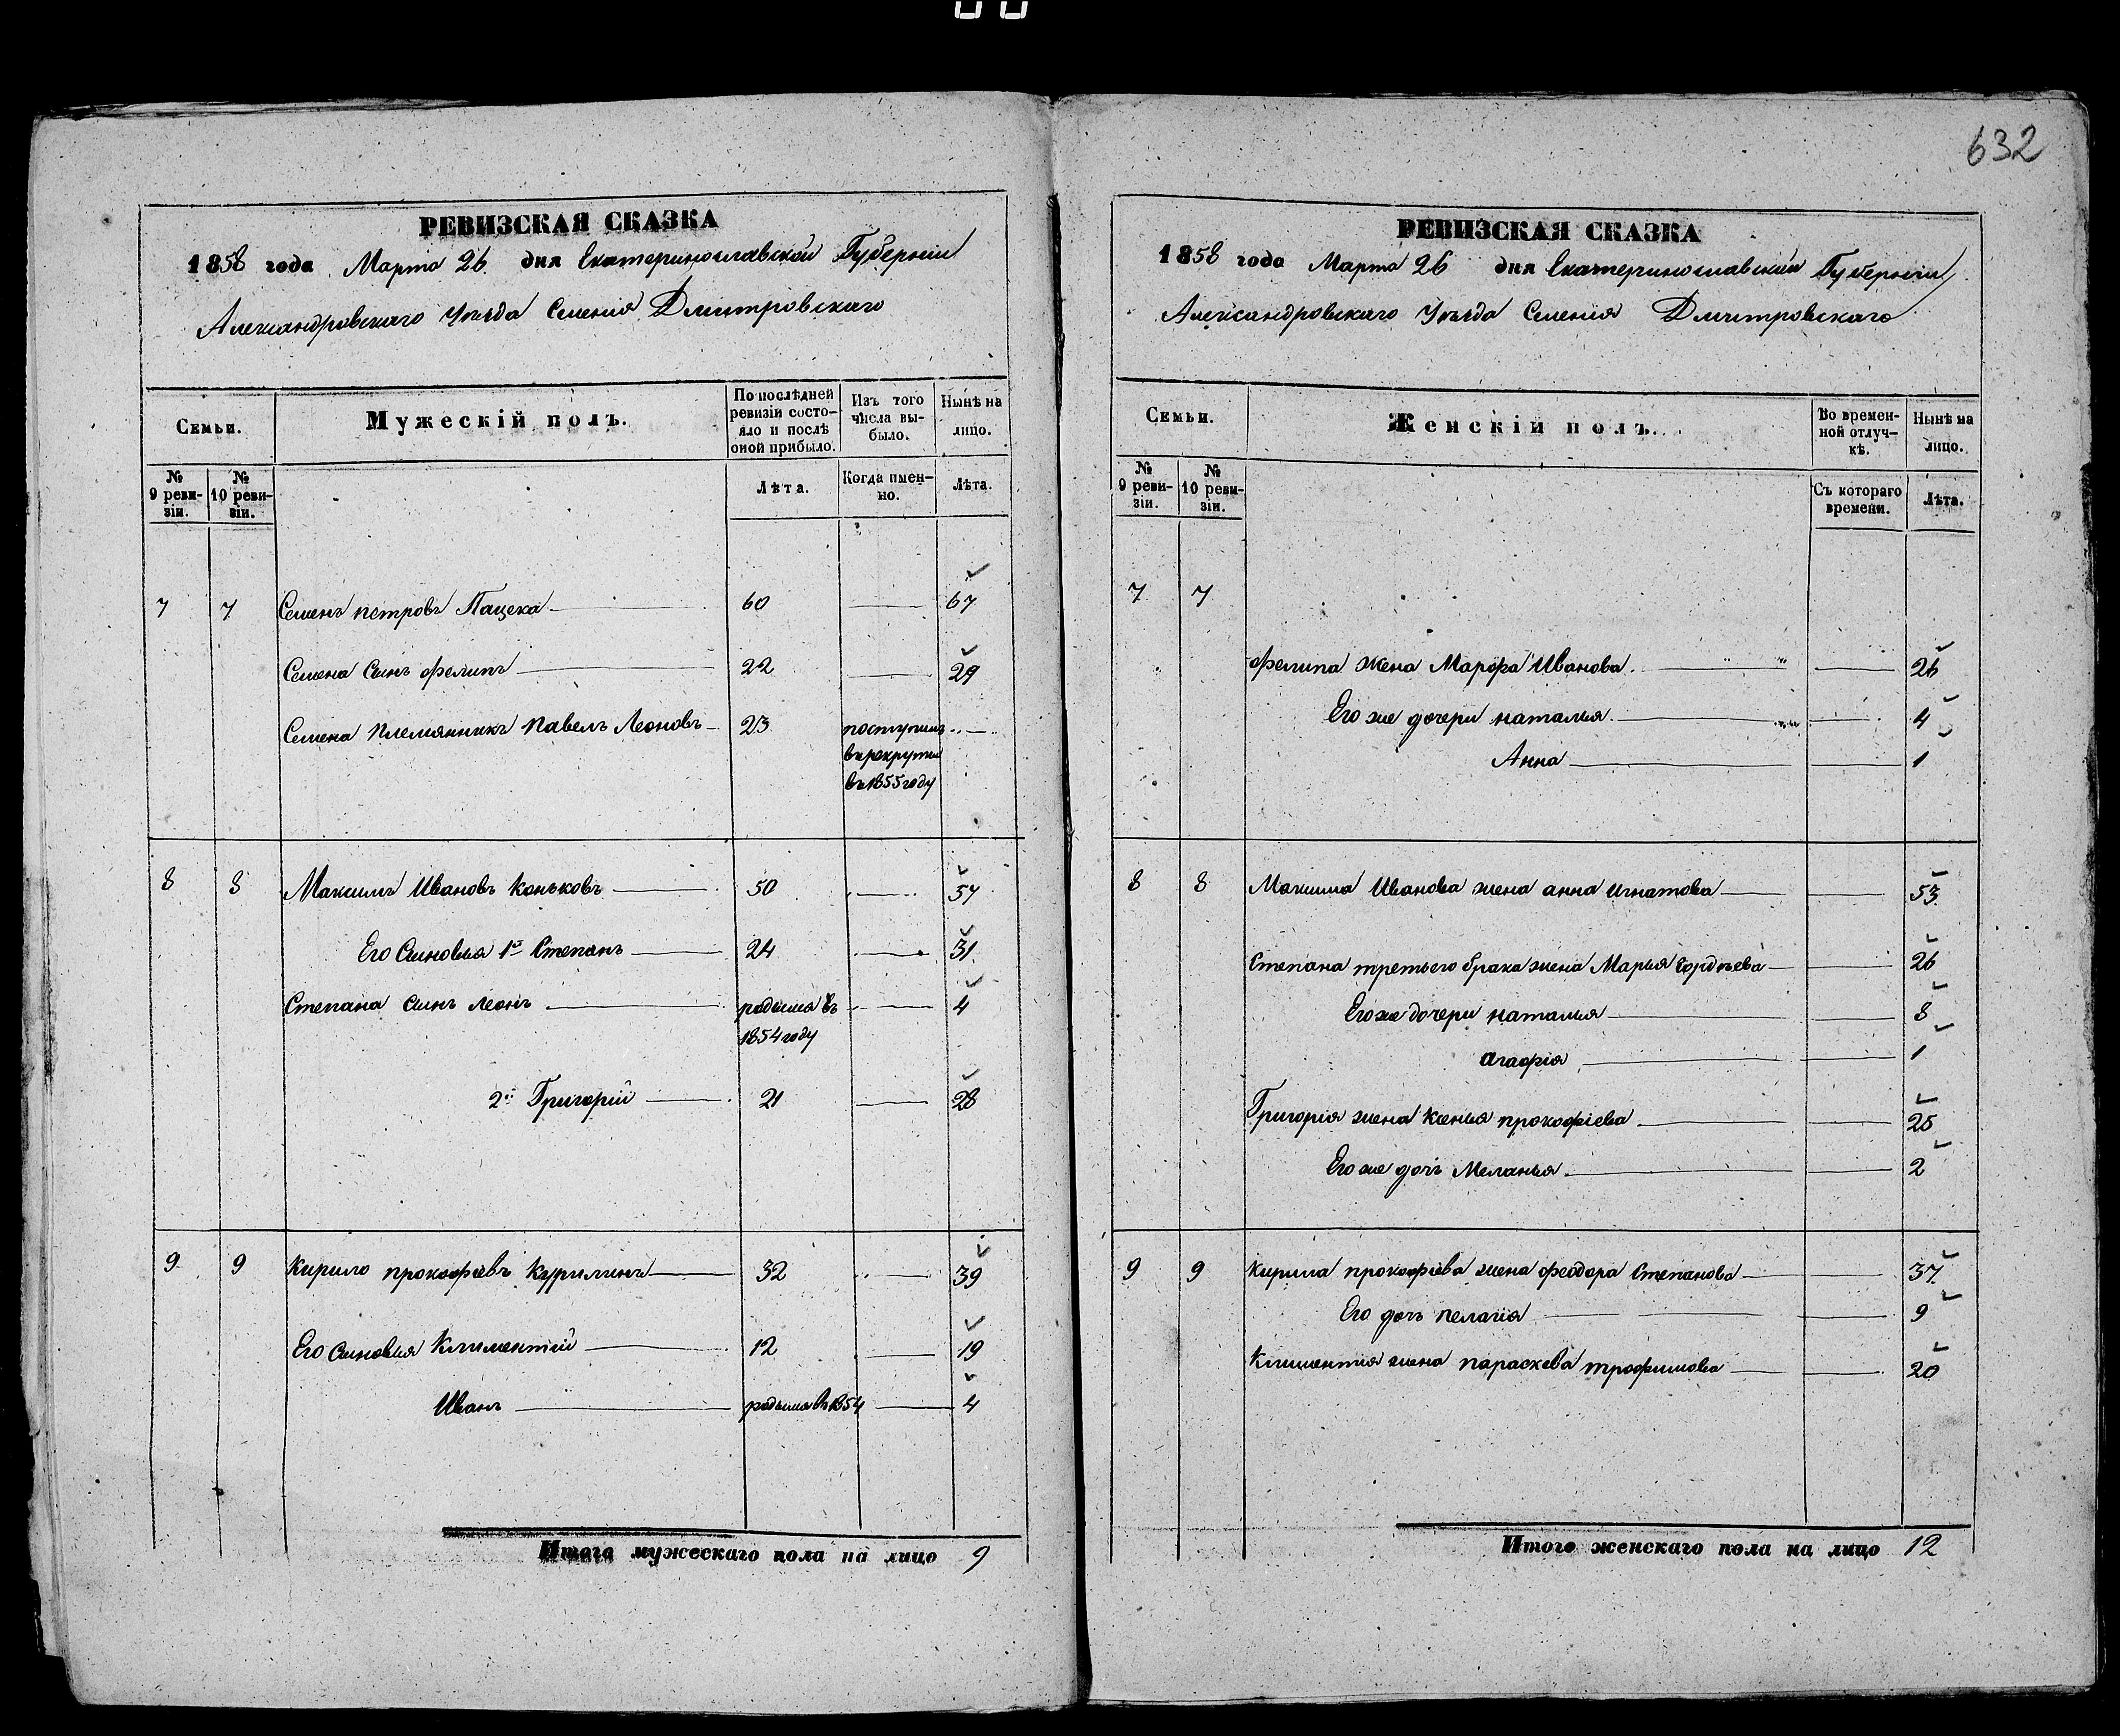 632
РЕВИЗСКАЯ СКАЗКА
1858 года Марта 26 дня Екатеринославской Губерніи
Александровскаго Уѣзда Селенія Дмитровскаго
Семьи.
Мужескій полъ.
По послѣдней ревизіи состо-яло и послѣ оной прибыло.
Изъ того числа вы-было.
Нынѣ на лицо.
№ 9 реви-зіи.
№ 10 реви-зіи.
Лѣта.
Когда имен-но.
Лѣта.
7 7 Семенъ петровъ Пацека 60 67
Семена Сынъ филипъ 22 29
Семена племянникъ павелъ Леоновъ 23 поступилъ
в рекруты
въ 1855 году
8 8 Максимъ Ивановъ Коньковъ 50 57
Его Сыновья 1й Степанъ 24 31
Степана сынъ леонъ родился въ 4
1854 году
2й Григорій 21 28
9 9 Кирило прокофьевъ Курилинъ 32 39
Его Сыновья Климентій 12 19
Иванъ родился въ 1854 4
Итого мужескаго пола на лицо 9
РЕВИЗСКАЯ СКАЗКА
1858 года Марта 26 дня Екатеринославской Губерніи
Александровскаго Уѣзда Селенія Дмитровскаго
Семьи.
Женскій полъ.
Во времен-ной отлуч-кѣ.
Нынѣ на лицо.
№ 9 реви-зіи.
№ 10 реви-зіи.
Съ котораго времени.
Лѣта.
7 7
филипа жена Марфа Иванова 26
Его же дочери наталья 4
Анна 1
8 8 Максима Иванова жена анна игнатова 53
Степана третьего брака жена Марья Гордѣева 26
Его же дочери наталья 8
агафія 1
Григорія жена Ксенья прокофіева 25
Его же дочь Меланья 2
9 9 Кирила прокофіева жена феодора Степанова 37
Его дочь пелагія 9
Климентия жена параскева трофимова 20
Итого женскаго пола на лицо 12